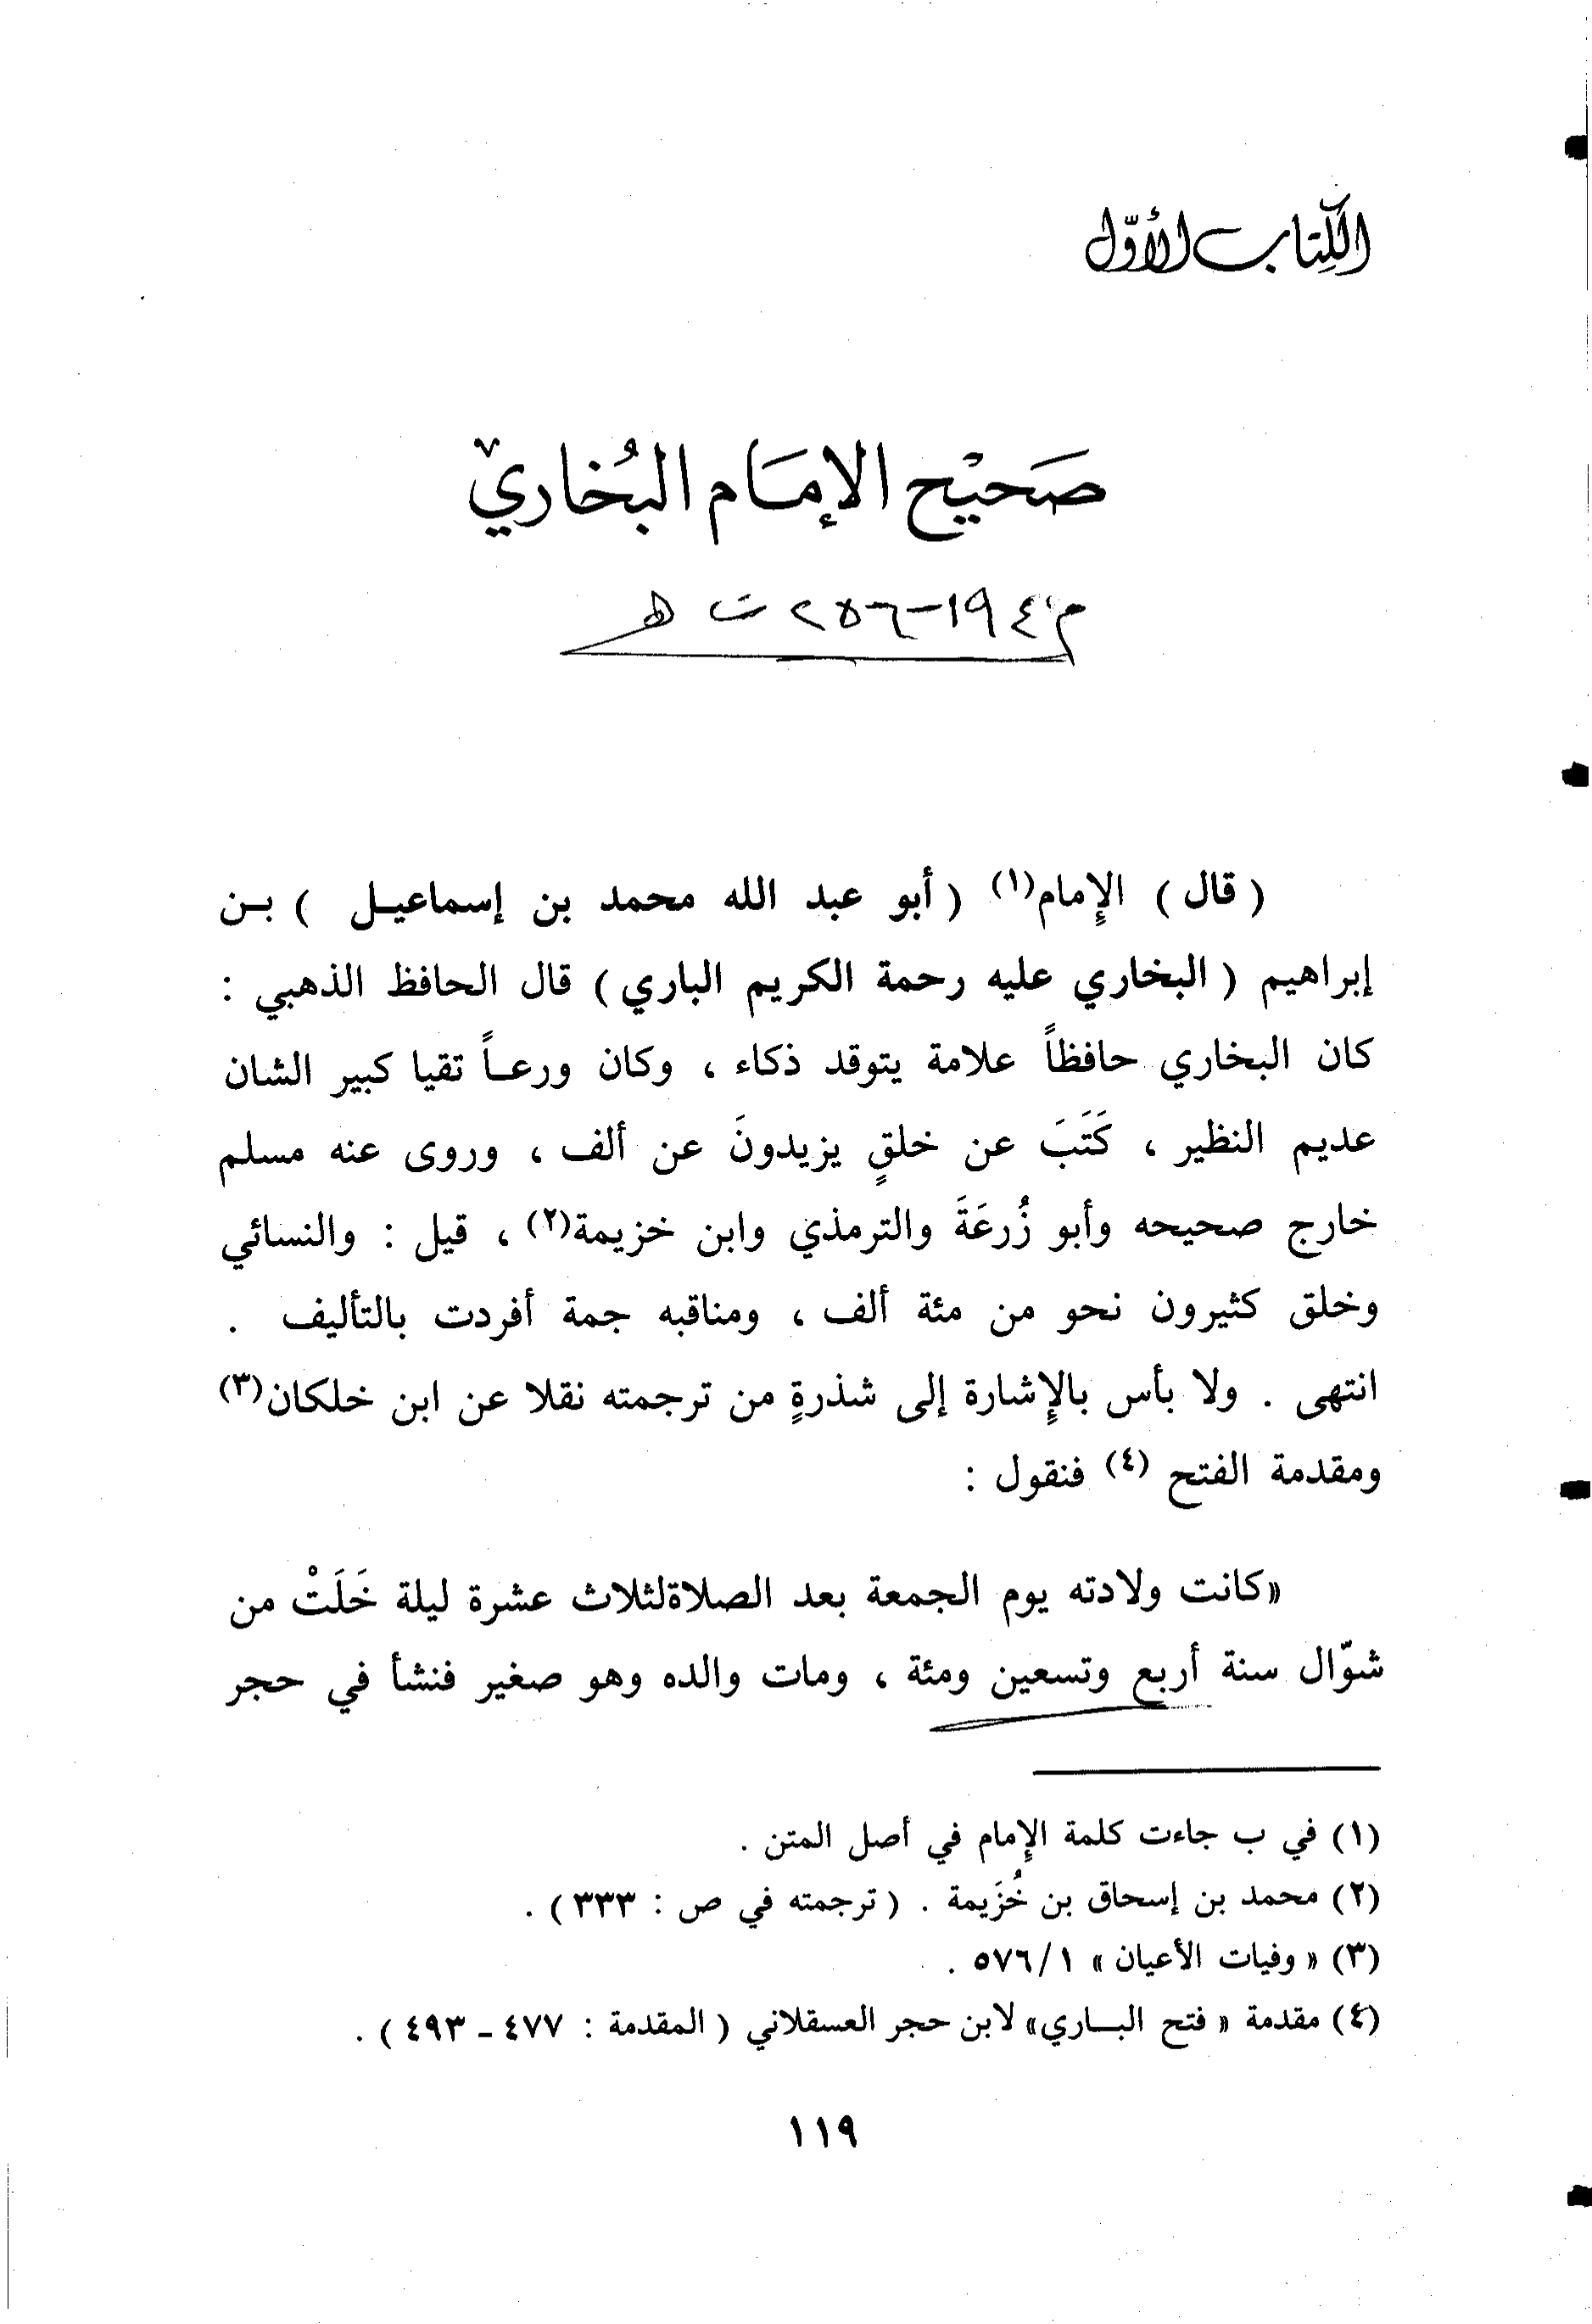 الكتاب الأوّل
صَحيْح الإمَام البُخاري
م ١٩٤-٢٥٦ ت هـ
( قال ) الإِمام(١) ( أبو عبد الله محمد بن إسماعيـل ) بـن
إبراهيم ( البخاري عليه رحمة الكريم الباري ) قال الحافظ الذهبي :
كان البخاري حافظاً علامة يتوقد ذكاء ، وكان ورعـاً تقيا كبير الشان
عديم النظير ، كَتَبَ عن خلقٍ يزيدونَ عن ألف ، وروى عنه مسلم
خارج صحيحه وأبو زُرعَةَ والترمذي وابن خزيمة(٢) ، قيل : والنسائي
وخلق كثيرون نحو من مئة ألف ، ومناقبه جمة أفردت بالتأليف .
انتهى . ولا بأس بالإِشارة إلى شذرةٍ من ترجمته نقلا عن ابن خلكان(٣)
ومقدمة الفتح (٤) فنقول :
«كانت ولادته يوم الجمعة بعد الصلاةلثلاث عشرة ليلة خَلَتْ من
شوّال سنة أربع وتسعين ومئة ، ومات والده وهو صغير فنشأ في حجر
(١) في ب جاءت كلمة الإِمام في أصل المتن .
(٢) محمد بن إسحاق بن خُزَيمة . ( ترجمته في ص : ٣٣٣ ) .
(٣) « وفيات الأعيان » ٥٧٦/١ .
(٤) مقدمة « فتح البـاري» لابن حجر العسقلاني ( المقدمة : ٤٧٧ - ٤٩٣ ) .
١١٩